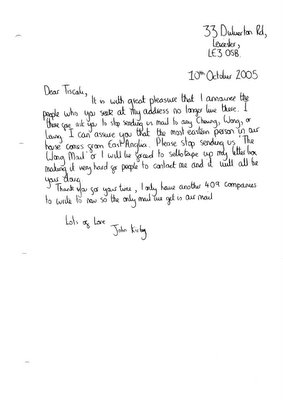 33 Dulverton Rd,
Leicester,
LE3 0SB.
10th October 2005
Dear Tiscali,
It is with great pleasure that I announce the
people who you seek at my address no longer live there. I
there fore ask you to stop sending us mail to any Cheung, Wong, or
Laung. I can assure you that the most eastern person in our
house comes from East Anglia. Please stop sending us 'The
Wong Mail' or I will be forced to sellotape up my letter box
making it very hard for people to contact me and it will all be
your doing.
Thank you for your time, I only have another 409 companies
to write to now so the only mail we get is our mail
Lots of Love
John Kirby